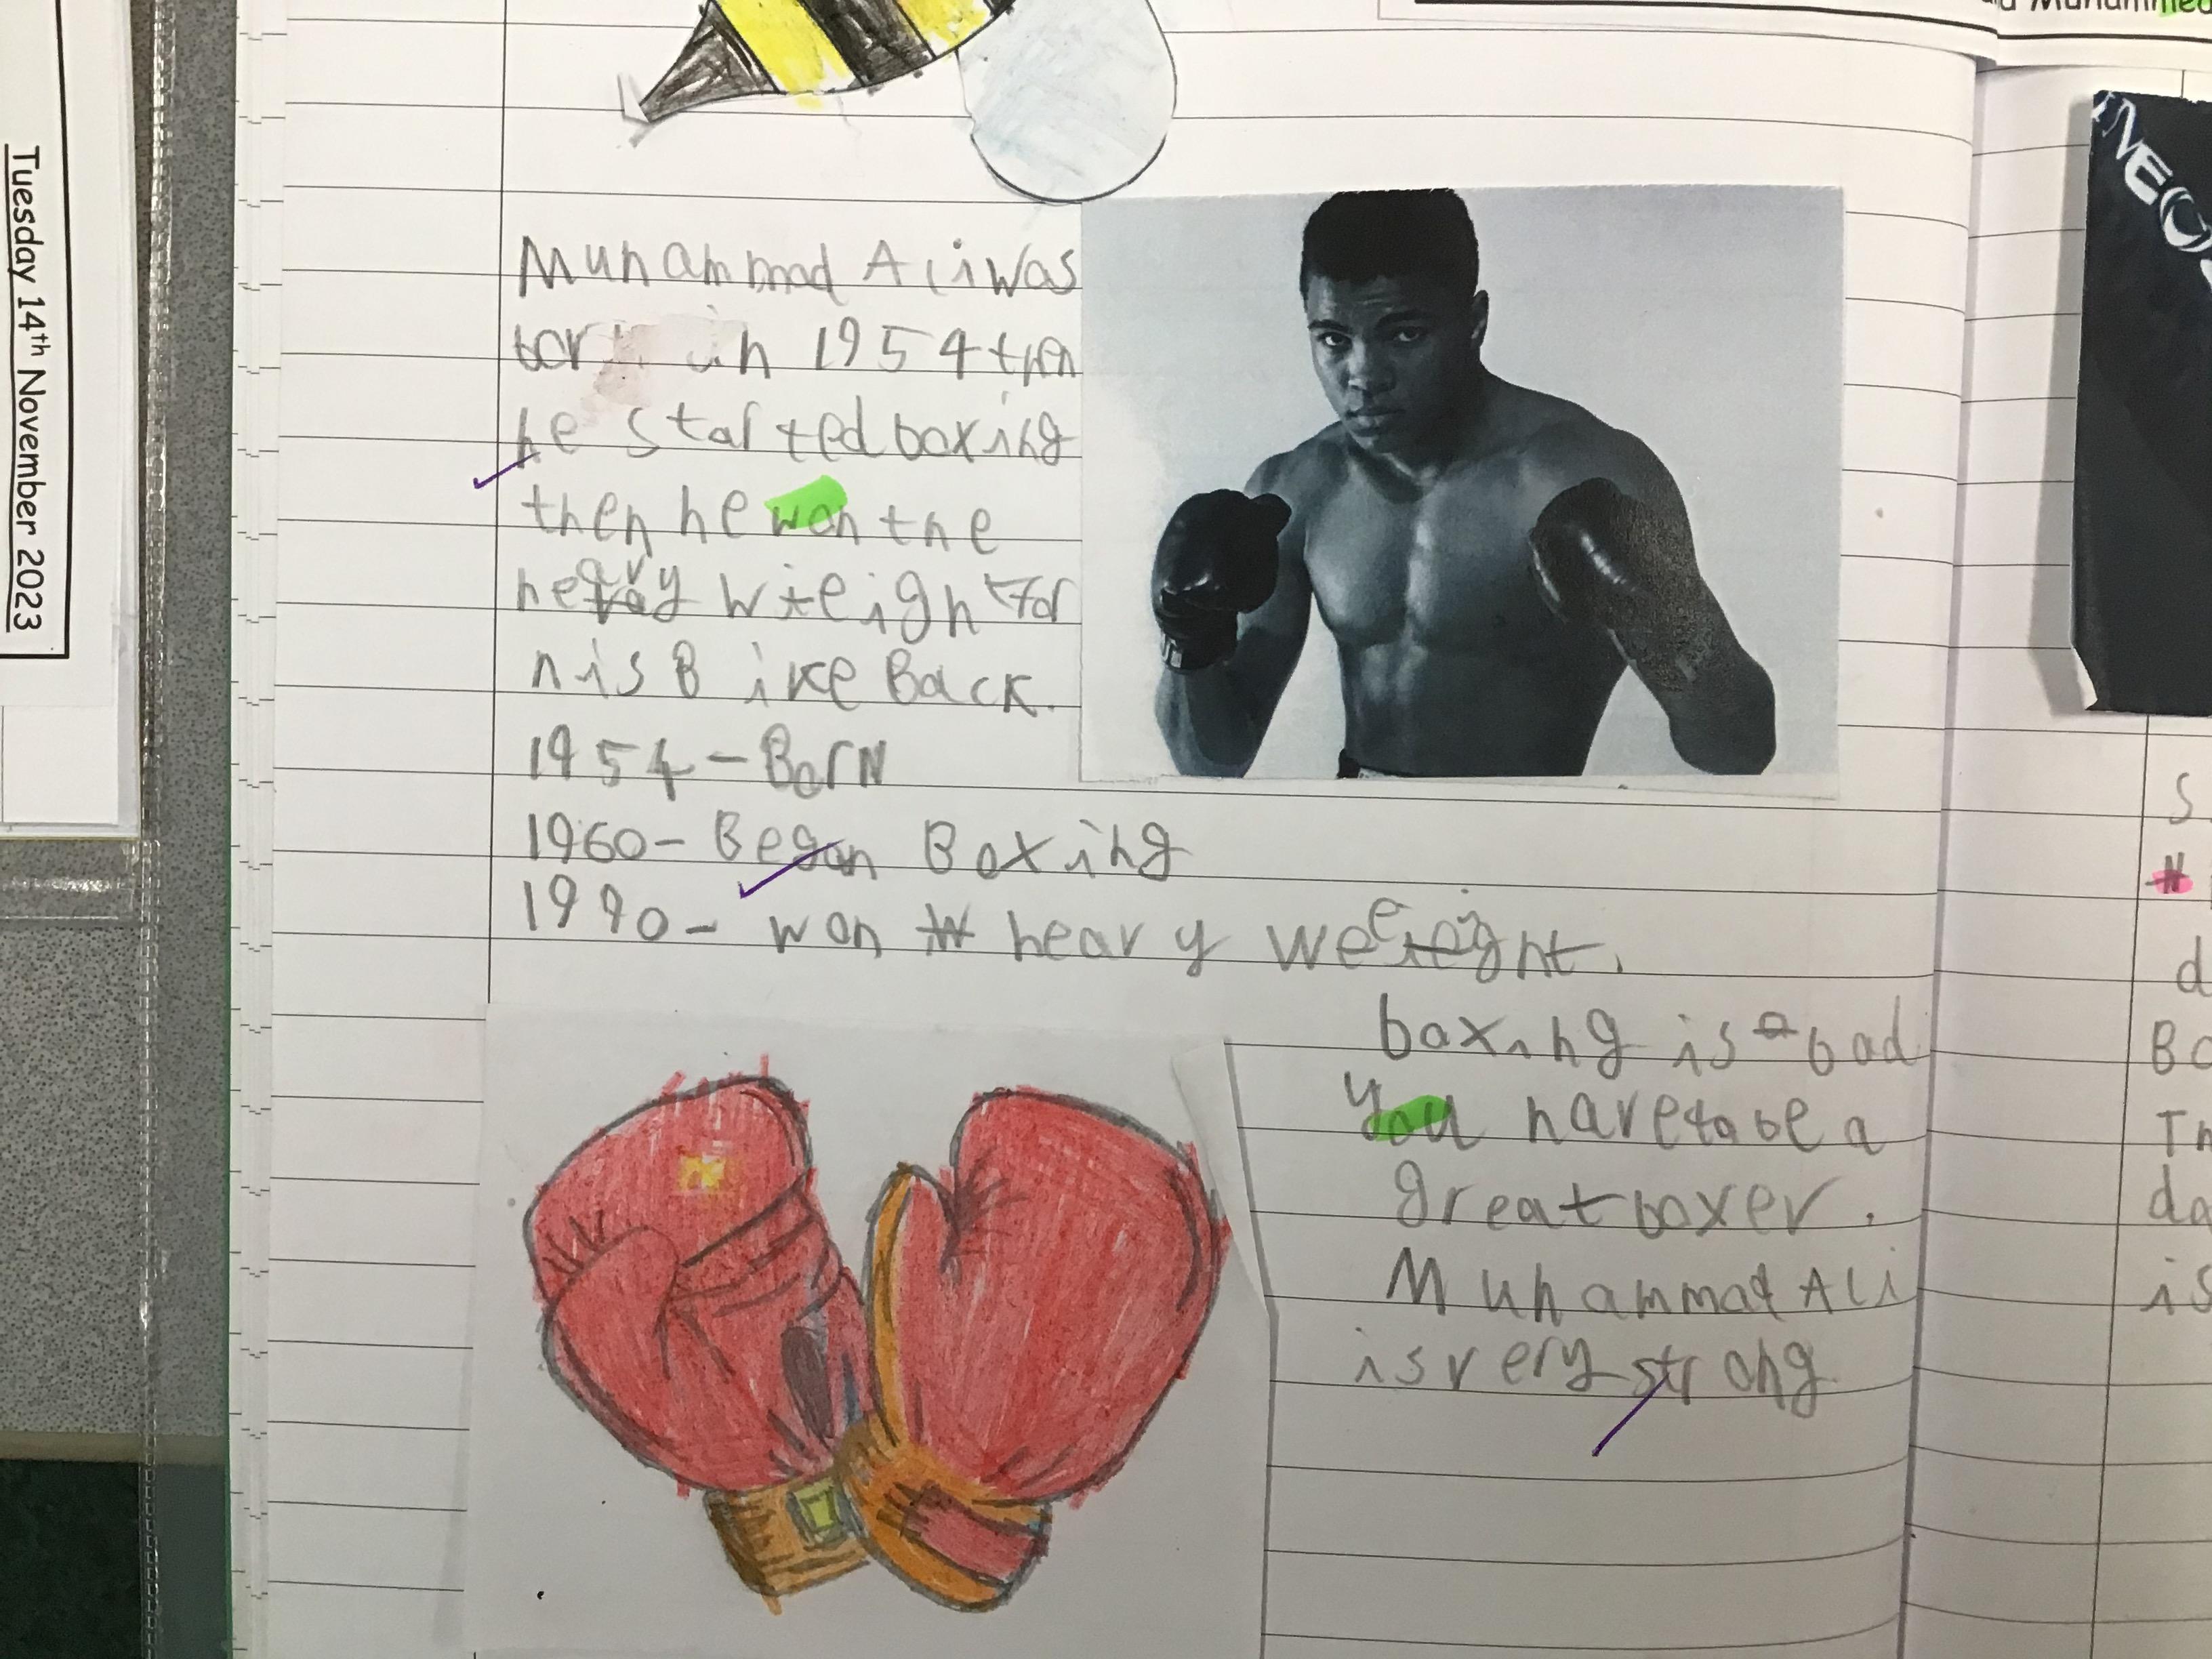 Tuesday 14th November 2023
Muhammad Ali was
born in 1954 then
he started boxing
then he won the
heavy wieight for
his Bike Back.
1954 - BorN
1960 - Began Boxing
1990 - won heavy weeight.
boxing is bad
you have to be a
great boxer.
Muhammad Ali
is very strong
INEOS
S
d
Bo
Th
da
is